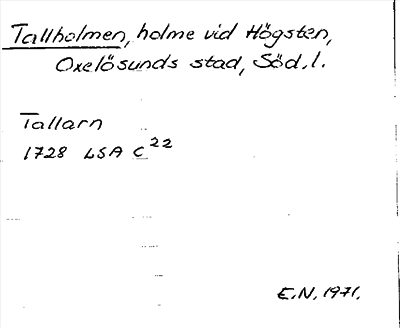 Tallholmen, holme vid Högsten,
Oxelösunds stad, Söd.l.
Tallarn
1728 LSA C22
E.N. 1971.